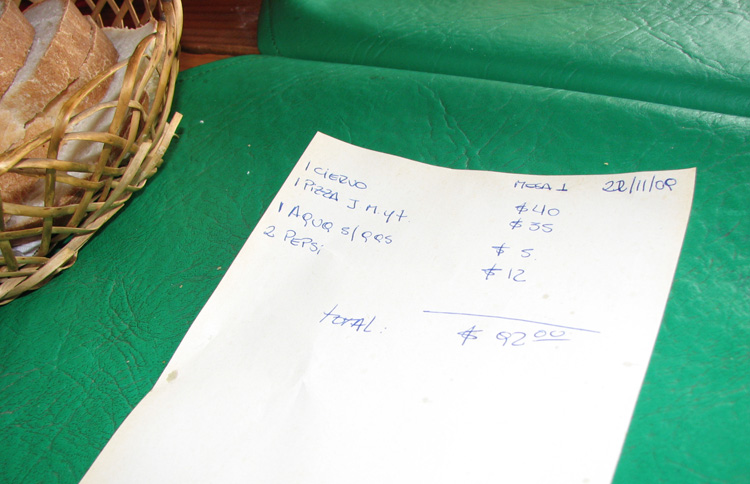 MESA 1 22/11/09
1 CIERVO $40
1 PIZZA J M y t. $35
1 AGUA s/gas $5.
2 PEPSi $12
TOTAL: $92 00